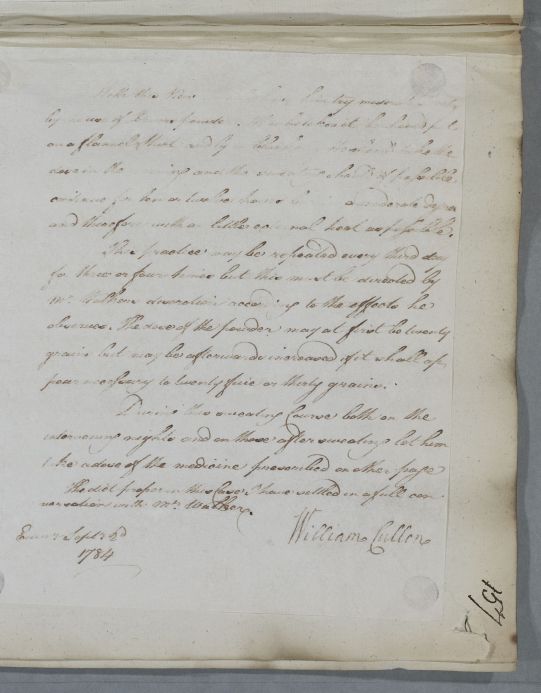 by means of Dovers powder. He must
on a flannel shirt and
dose in the and the sweating
continue for ten or twelve hours moderate degree
and therefore with as little external heat as possible.
This practice may be repeated every third day
for three or four times but this must be directed by
Mr. Walkers discretion according to the effects he
observes. The dose of the powder may at first be twenty
grains but may be afterwards increased if it shall ap-
pear necessary to twenty five or thirty grains.
During this sweating Course both on the
intervening nights and on those after sweating let him
take a dose of the medicine prescribed on other page
The diet proper in this Case I have settled in a full con
versation with Mr. Walker.
William Cullen
Sept. 2d
1784
157